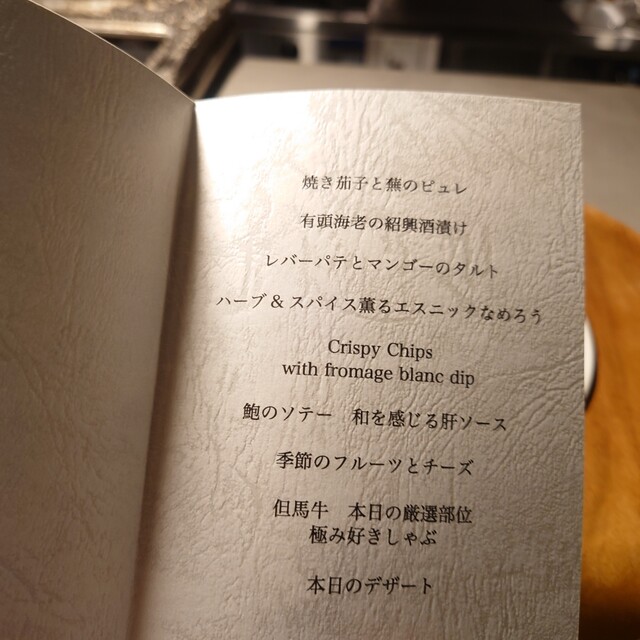 焼き茄子と蕪のピュレ
有頭海老の紹興酒漬け
レバーパテとマンゴーのタルト
ハーブ & スパイス薫るエスニックなめろう
Crispy Chips
with fromage blanc dip
鮑のソテー　和を感じる肝ソース
季節のフルーツとチーズ
但馬牛　本日の厳選部位
極み好きしゃぶ
本日のデザート